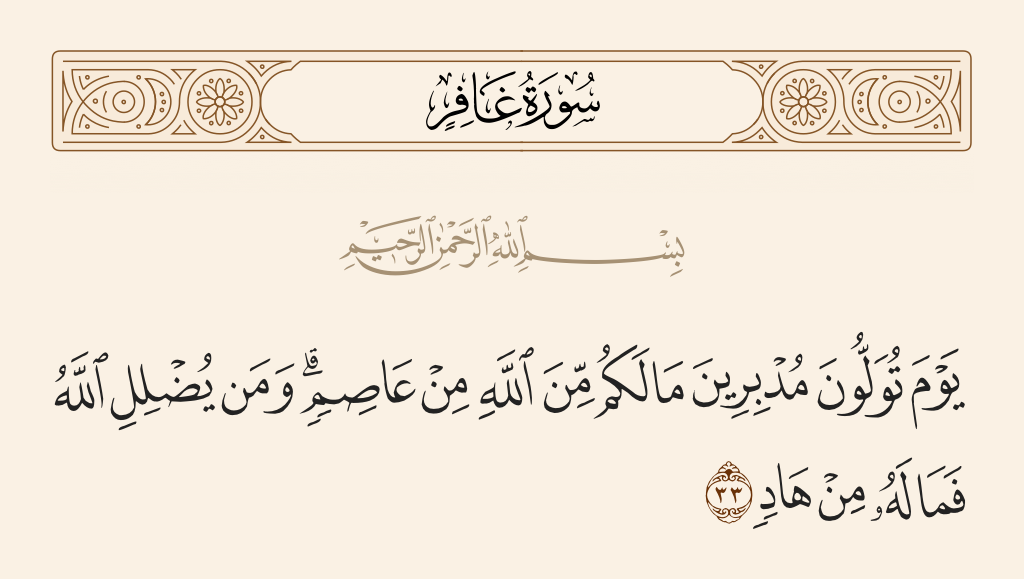 سُورَةُ غَافِرٍ
بِسْمِ ٱللَّهِ ٱلرَّحْمَٰنِ ٱلرَّحِيمِ
يَوْمَ تُوَلُّونَ مُدْبِرِينَ مَا لَكُم مِّنَ ٱللَّهِ مِنْ عَاصِمٍ ۗ وَمَن يُضْلِلِ ٱللَّهُ
فَمَا لَهُۥ مِنْ هَادٍ ٣٣